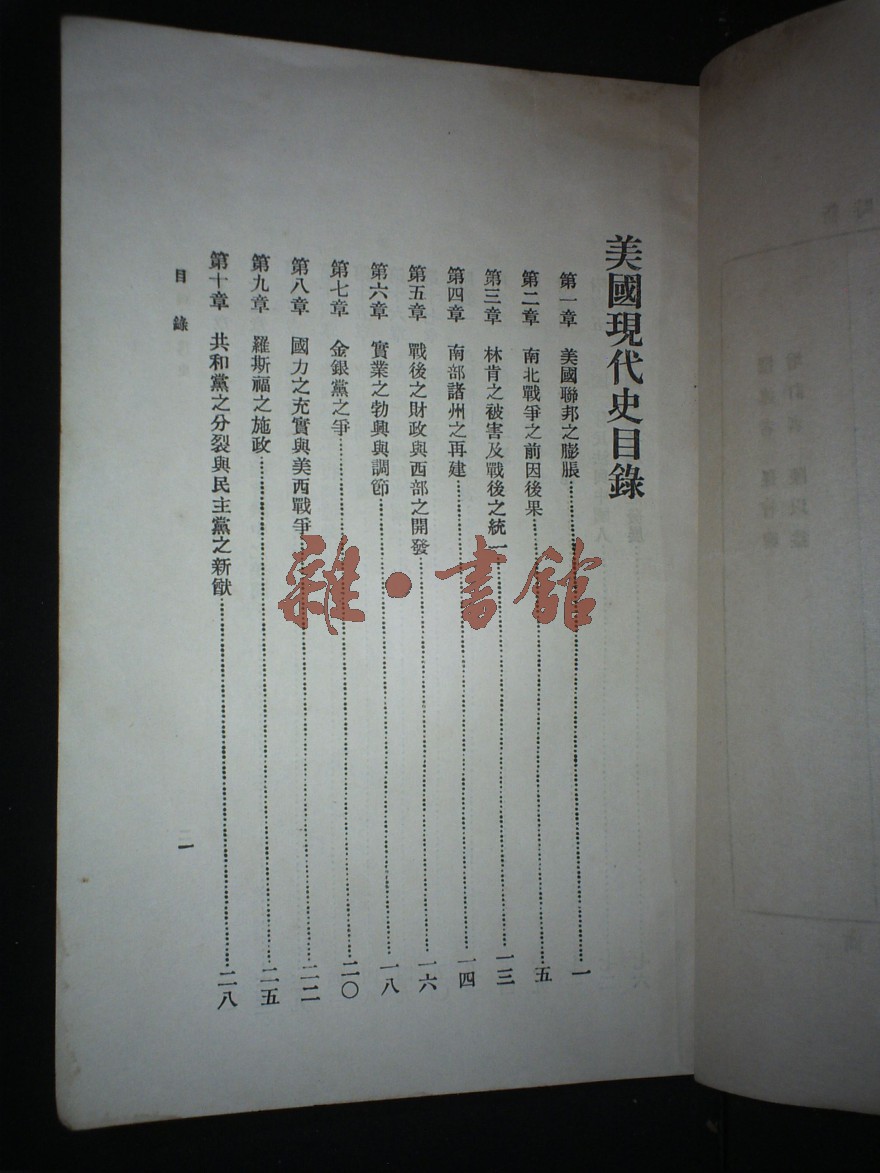 美國現代史目錄
第一章 美國聯邦之膨脹………一
第二章 南北戰爭之前因後果………五
第三章 林肯之被害及戰後之統一………一三
第四章 南部諸州之再建………一四
第五章 戰後之財政與西部之開發………一六
第六章 實業之勃興與調節………一八
第七章 金銀黨之爭………二〇
第八章 國力之充實與美西戰爭………二二
第九章 羅斯福之施政………二五
第十章 共和黨之分裂與民主黨之新猷………二八
目錄 一
雜·書館